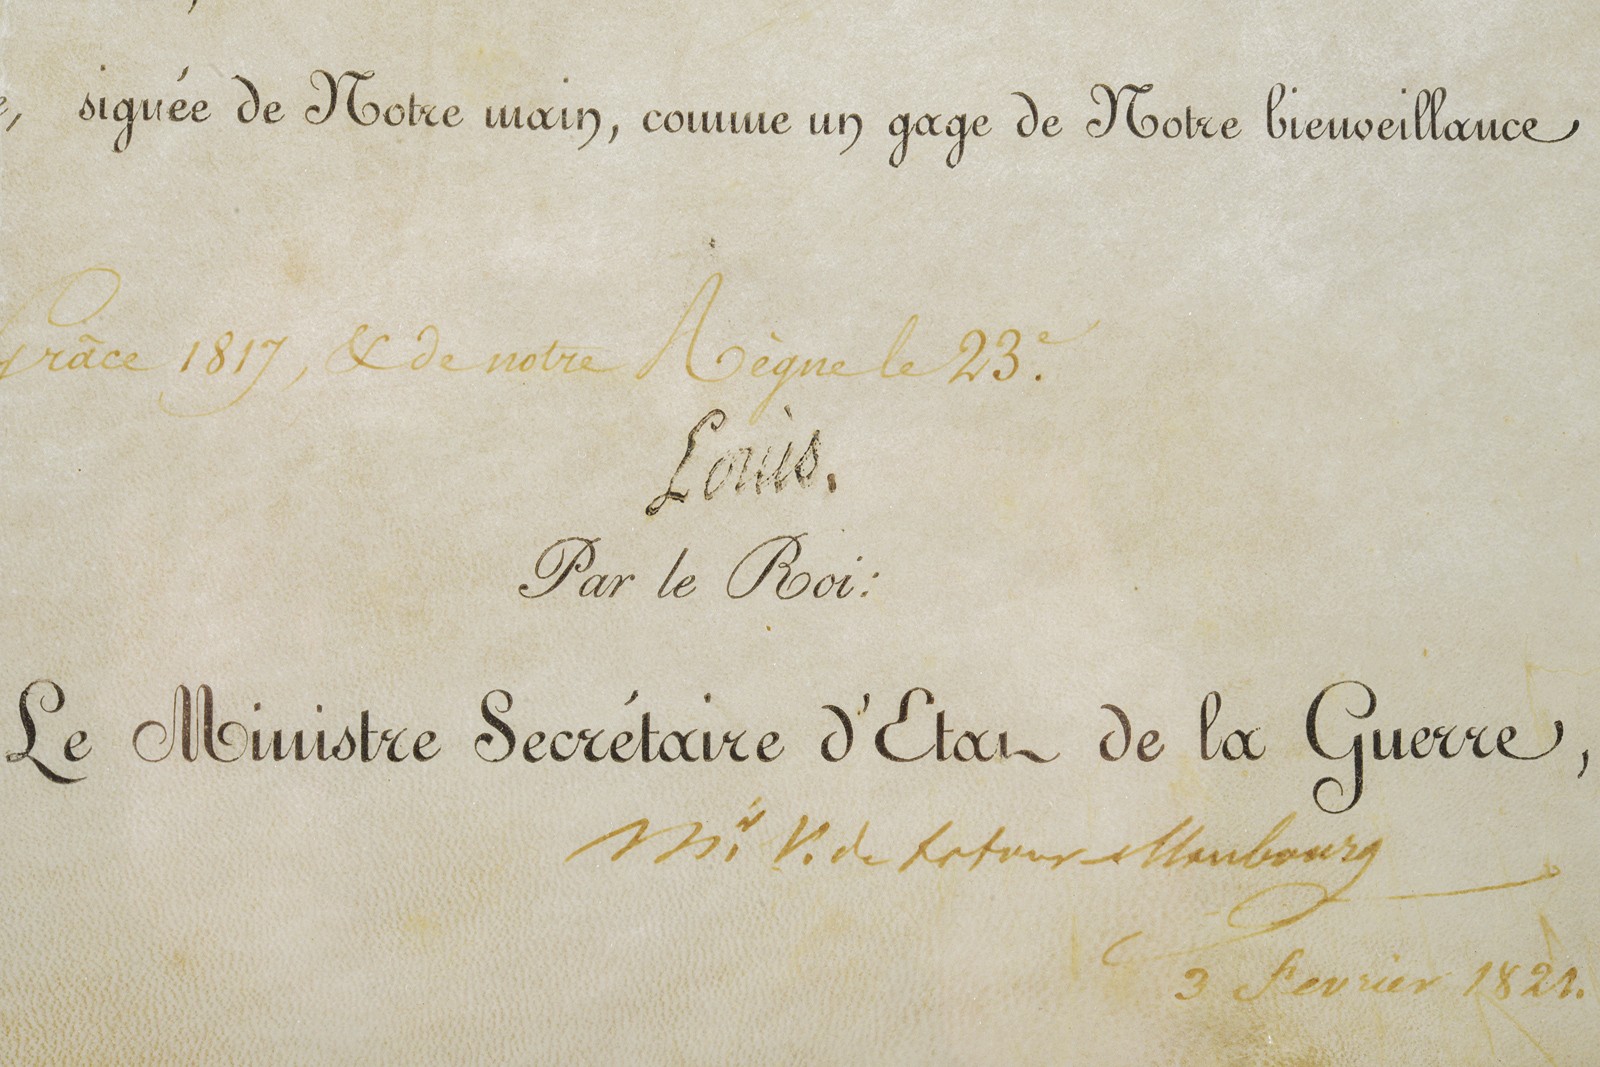 signée de Notre main, comme un gage de Notre bienveillance
Grâce 1817, & de notre Règne le 23.e
Louis.
Par le Roi:
Le Ministre Secrétaire d'Etat de la Guerre,
M.is V. de Latour-Maubourg
3 Fevrier 1821.